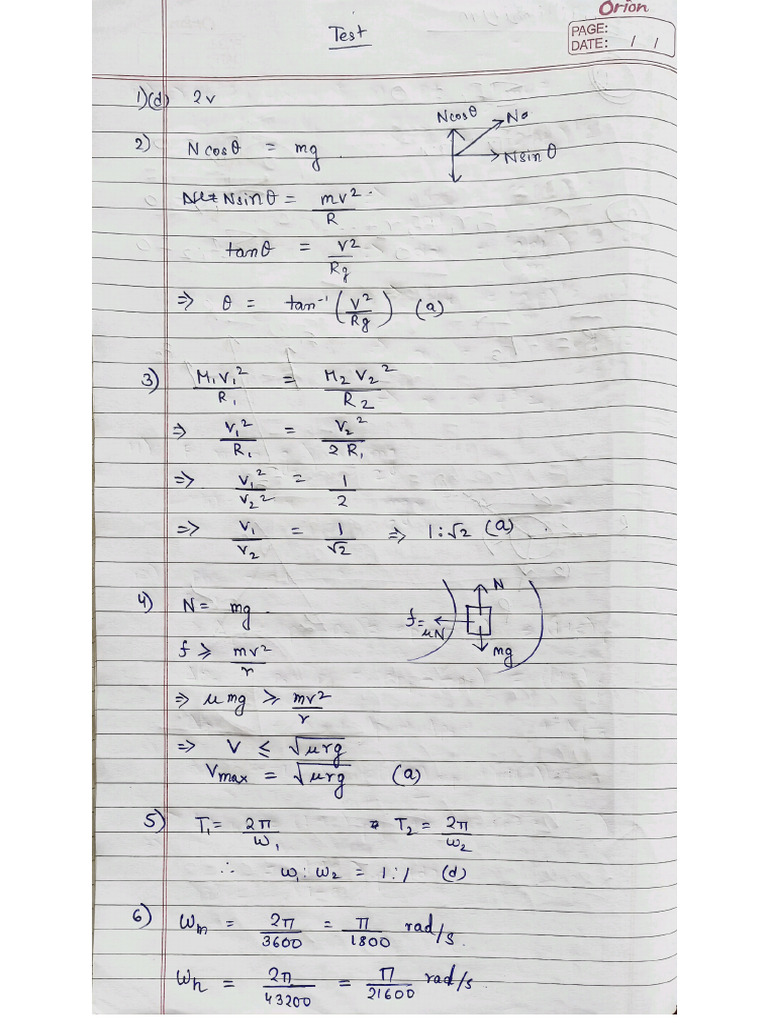 Orion
PAGE:
DATE: / /
Test
1) (d) 2v
2) N cosθ = mg.
Ncosθ
N
Nsinθ
Nsinθ = mv²/R
tanθ = v²/Rg
⇒ θ = tan⁻¹(v²/Rg) (a)
3) M₁v₁²/R₁ = M₂v₂²/R₂
⇒ v₁²/R₁ = v₂²/2R₁
⇒ v₁²/v₂² = 1/2
⇒ v₁/v₂ = 1/√2 ⇒ 1:√2 (a)
4) N = mg.
N
f = μN
mg
f ≥ mv²/r
⇒ μmg ≥ mv²/r
⇒ V ≤ √μrg
Vmax = √μrg (a)
5) T₁ = 2π/ω₁ T₂ = 2π/ω₂
∴ ω₁:ω₂ = 1:1 (d)
6) ωm = 2π/3600 = π/1800 rad/s.
ωh = 2π/43200 = π/21600 rad/s